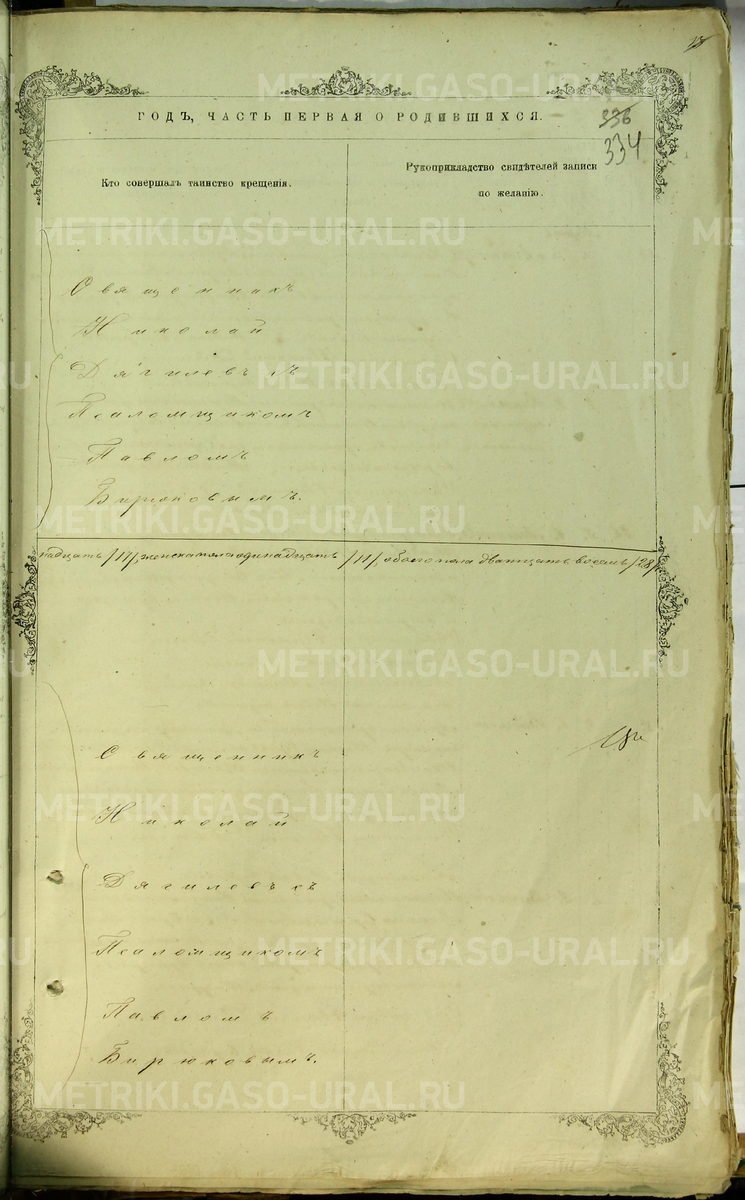 ГОДЪ, ЧАСТЬ ПЕРВАЯ О РОДИВШИХСЯ.
336
334
Кто совершалъ таинство крещенія.
Рукоприкладство свидѣтелей записи
по желанію.
Священникъ
Николай
Дягилевъ съ
Псаломщикомъ
Павломъ
Бирюковымъ.
надцать /17/, женска пола одинадцать /11/, обоего пола двадцать восемь /28/
Священникъ
Николай
Дягилевъ съ
Псаломщикомъ
Павломъ
Бирюковымъ.
METRIKI.GASO-URAL.RU